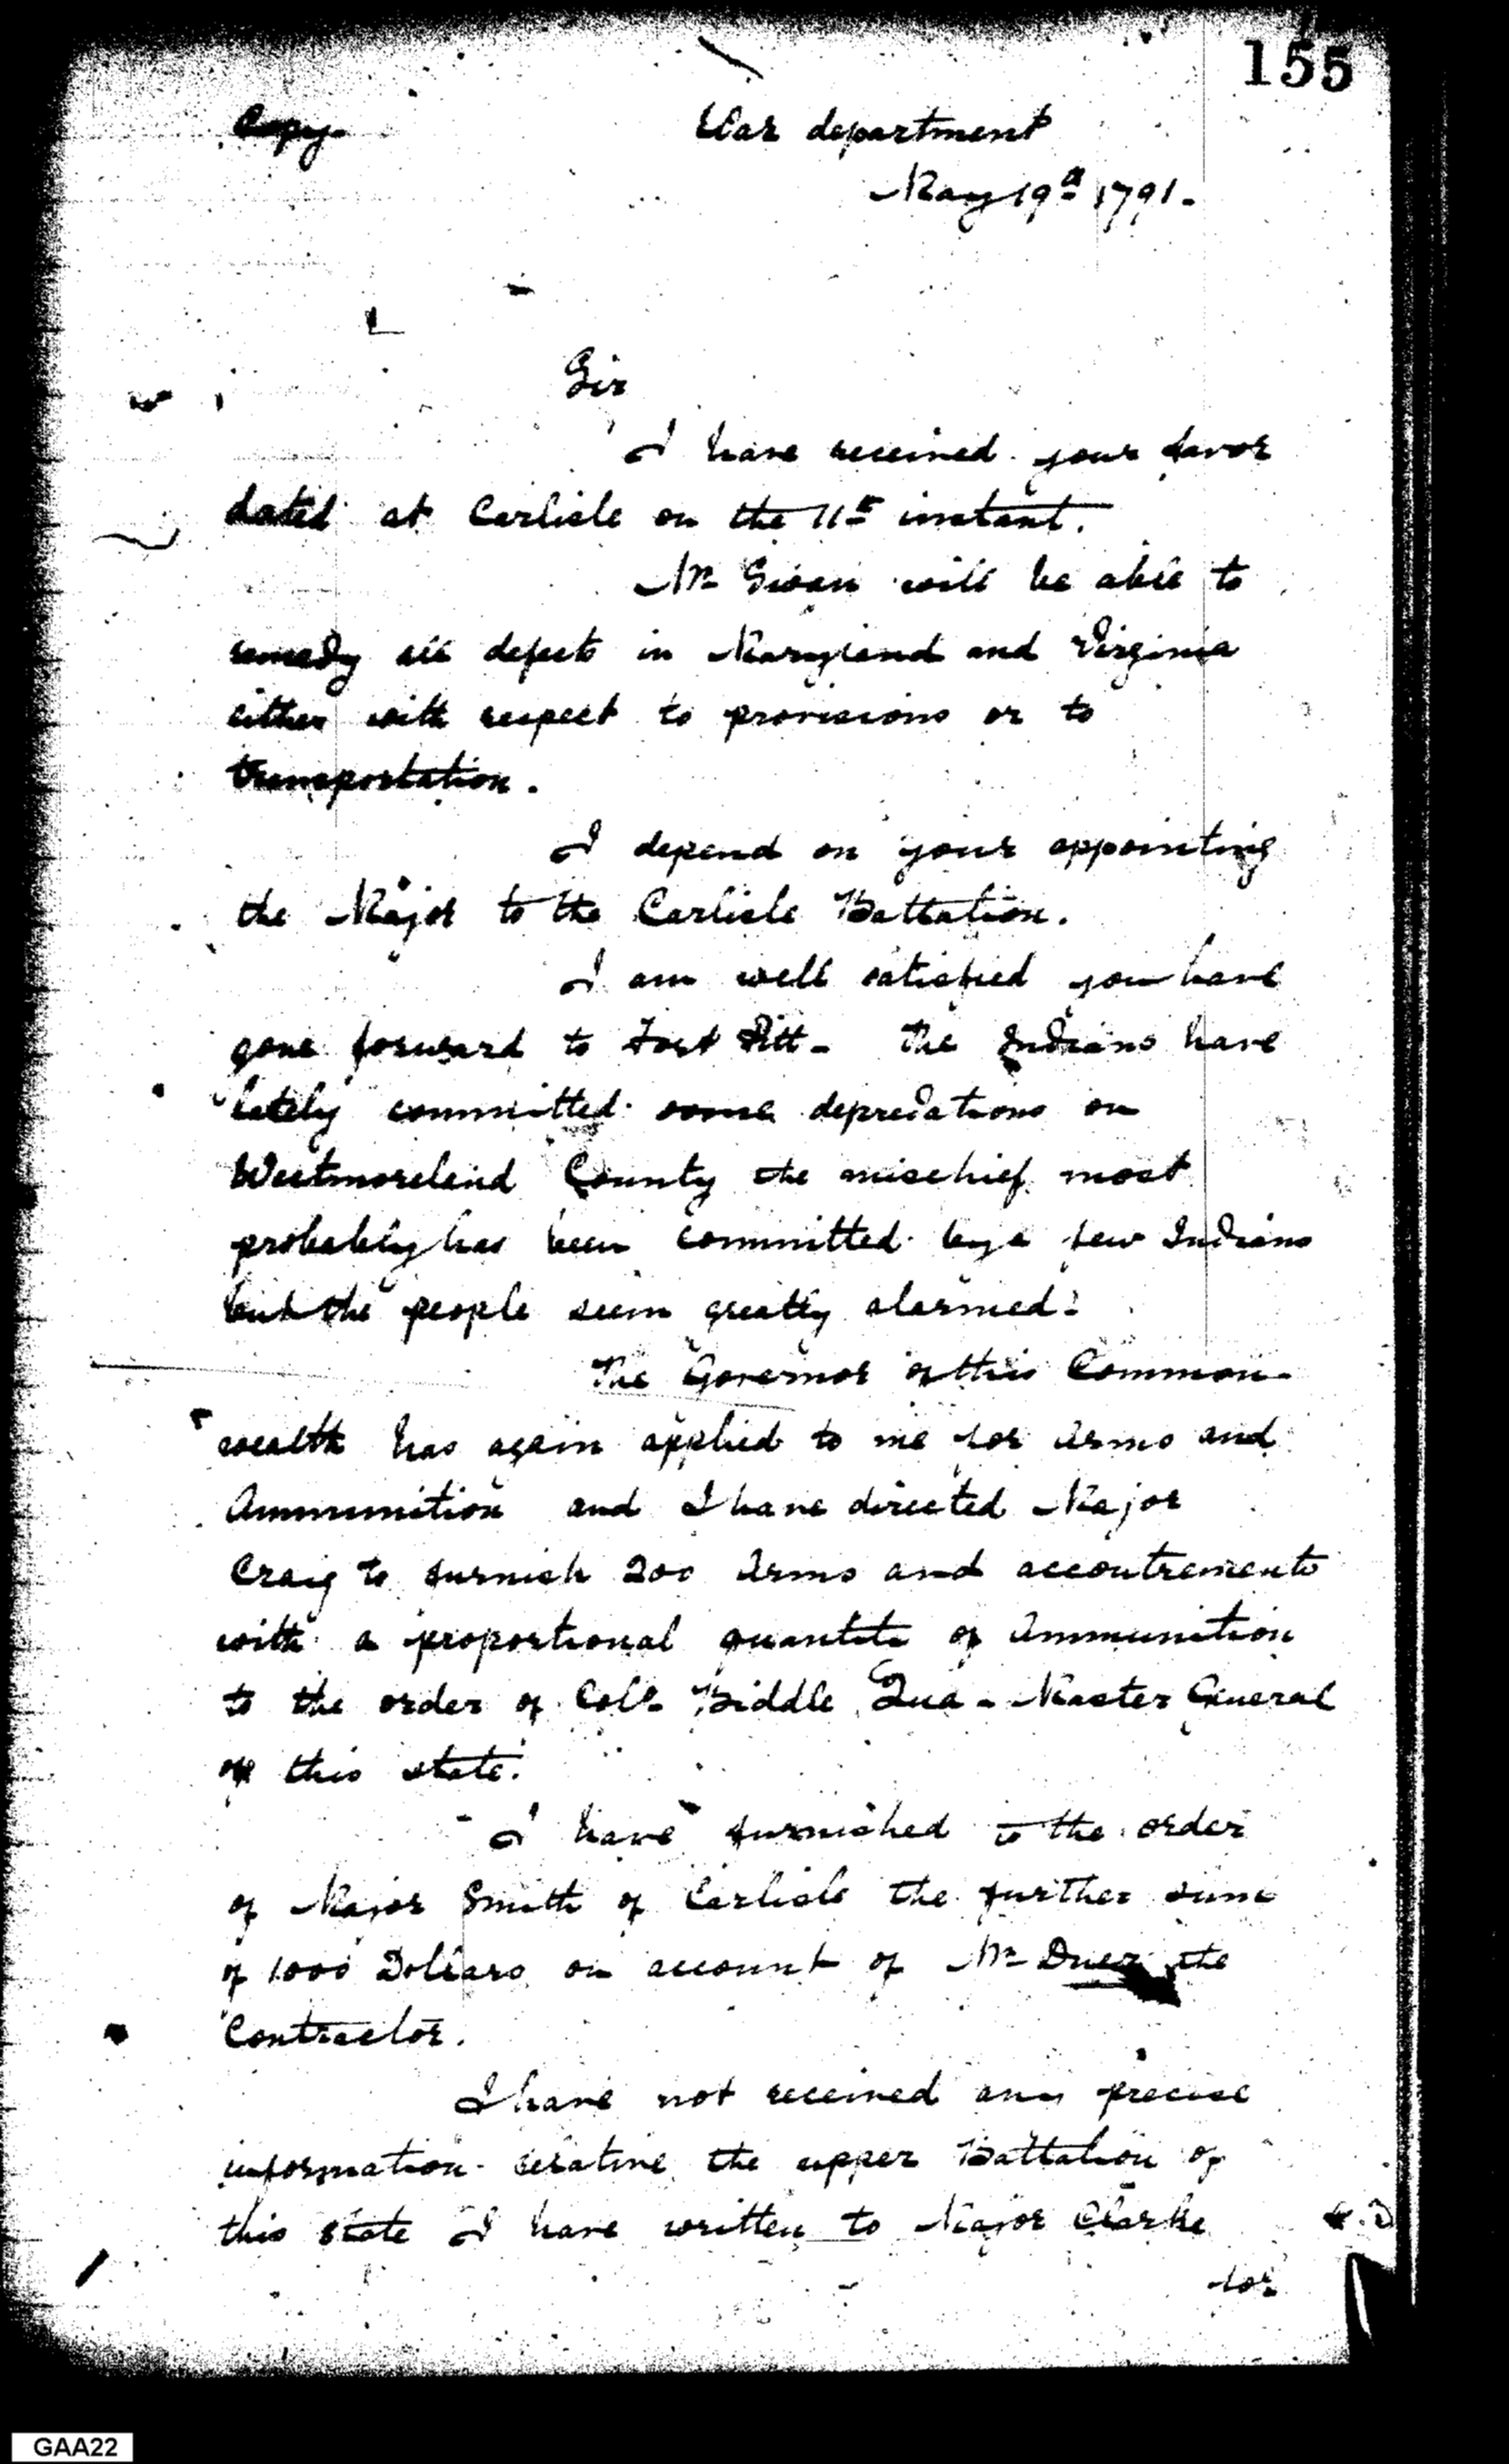 155
Copy
War department
May 19th 1791.
Sir
I have received your favor
dated at Carlisle on the 11th instant.
Mr Swan will be able to
remedy all defects in Maryland and Virginia
either with respect to provisions or to
transportation.
I depend on your appointing
the Major to the Carlisle Battalion.
I am well satisfied you have
gone forward to Fort Pitt - The Indians have
lately committed some depredations on
Westmoreland County the mischief most
probably has been committed by a few Indians
but the people seem greatly alarmed.
The Governor of this Common-
wealth has again applied to me for Arms and
Ammunition and I have directed Major
Craig to furnish 200 Arms and accoutrements
with a proportional quantity of Ammunition
to the order of Coll. Biddle Qua-Master General
of this state.
I have furnished to the order
of Major Smith of Carlisle the further sum
of 1000 Dollars on account of Mr Duer the
Contractor.
I have not received any precise
information relative the upper Battalion of
this state I have written to Major Clarke
for
GAA22